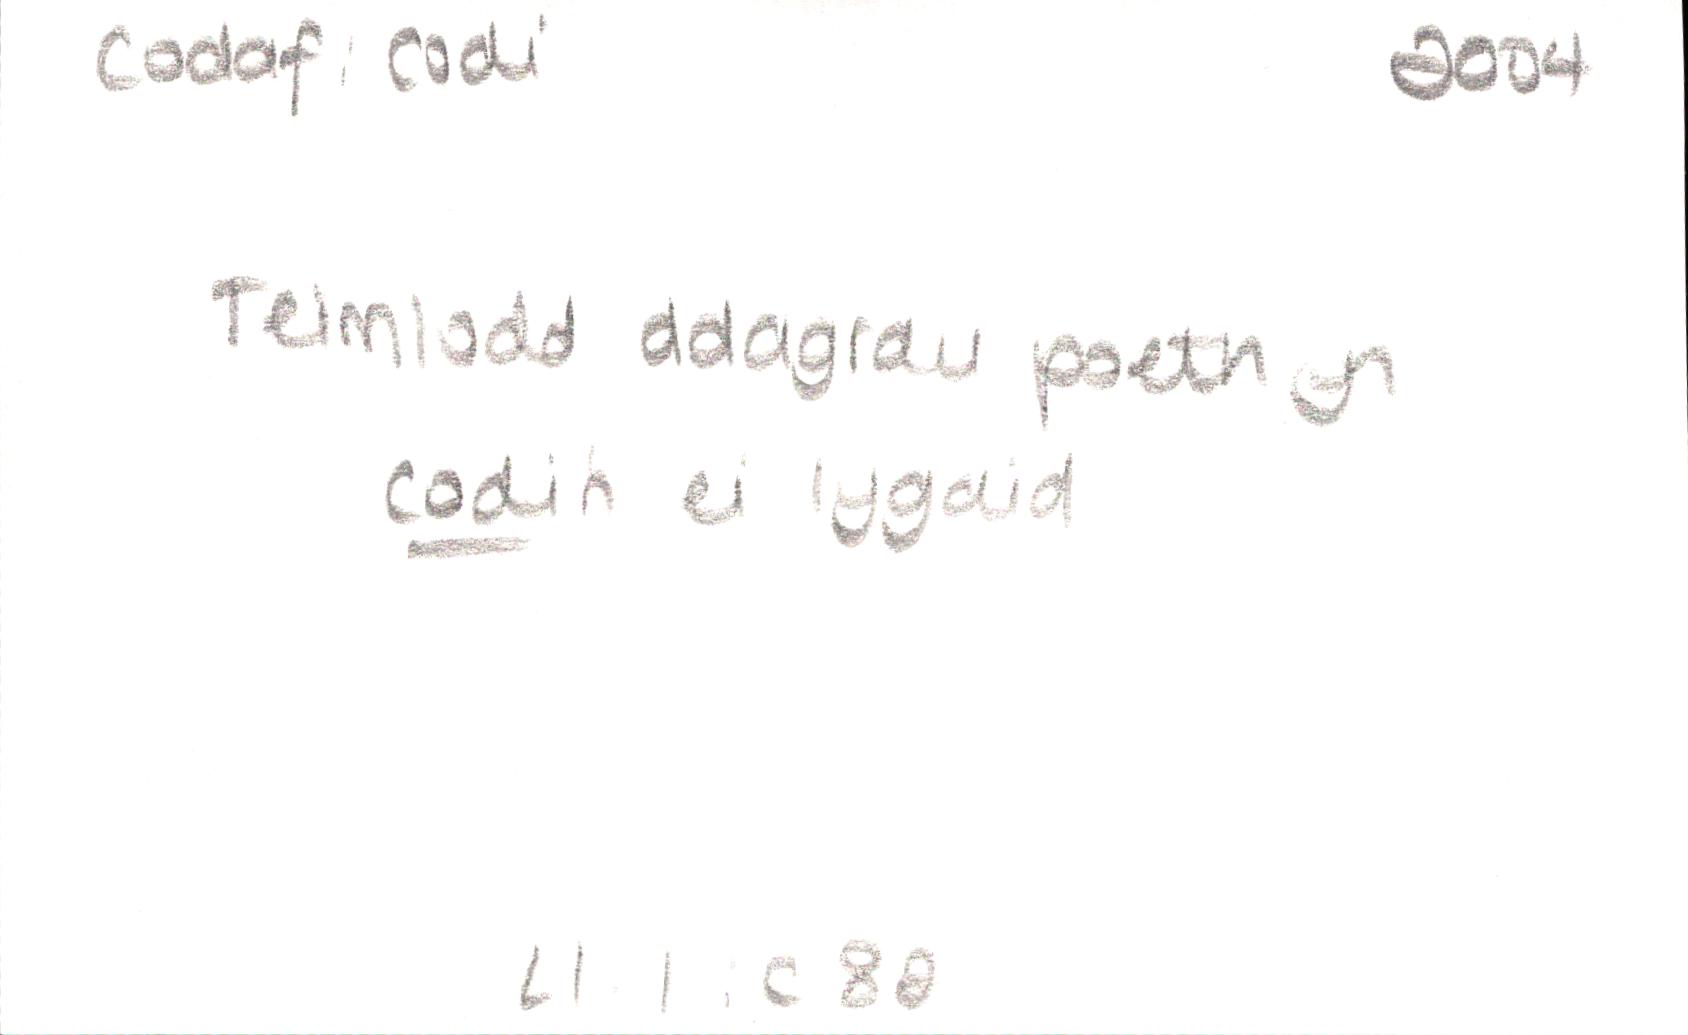 Codaf : codi 2004
Teimlodd ddagrau poeth yn
codi'n ei lygaid
Ll. I : C 88